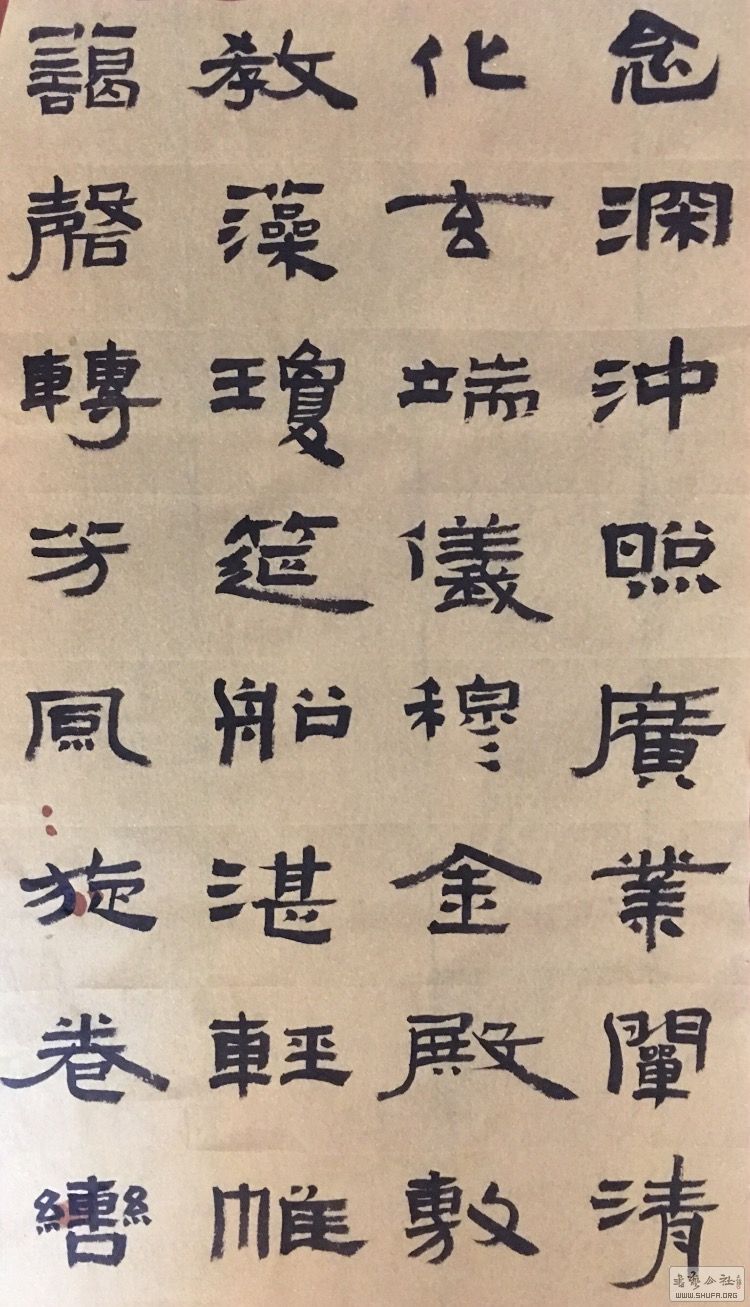 念渊沖照廣業闡清
化玄端儀穆金殿敷
教藻瓊筵船湛輕帷
藹馨轉芳風旋卷轡
書藝公社
WWW.SHUFA.ORG